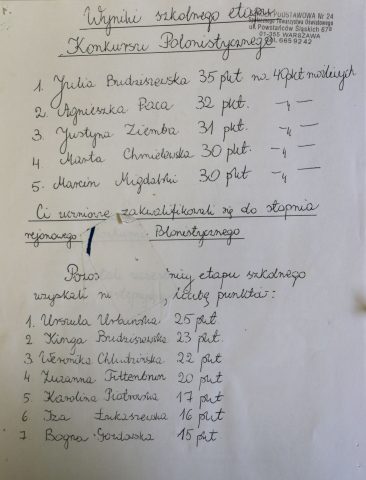 Wyniki szkolnego etapu
PODSTAWOWA Nr 24
ul. Powstańców Śląskich 67a
01-355 WARSZAWA
tel. 665 92 42
Konkursu Polonistycznego
1. Julia Budziszewska 35 pkt na 40 pkt możliwych
2. Agnieszka Paca 32 pkt. -"-
3. Justyna Ziemba 31 pkt. -"-
4. Marta Chmielewska 30 pkt -"-
5. Marcin Migdalski 30 pkt -"-
Ci uczniowie zakwalifikowali się do stopnia
rejonowego Polonistycznego
Pozos nicy etapu szkolnego
uzyskali na liczbę punktów:
1. Urszula Urbańska 25 pkt
2 Kinga Budziszewska 23 pkt.
3 Weronika 22 pkt
4 Zuzanna 20 pkt
5. Karolina Piotrowska 17 pkt
6 Iza Łukaszewska 16 pkt
7 Bogna 15 pkt